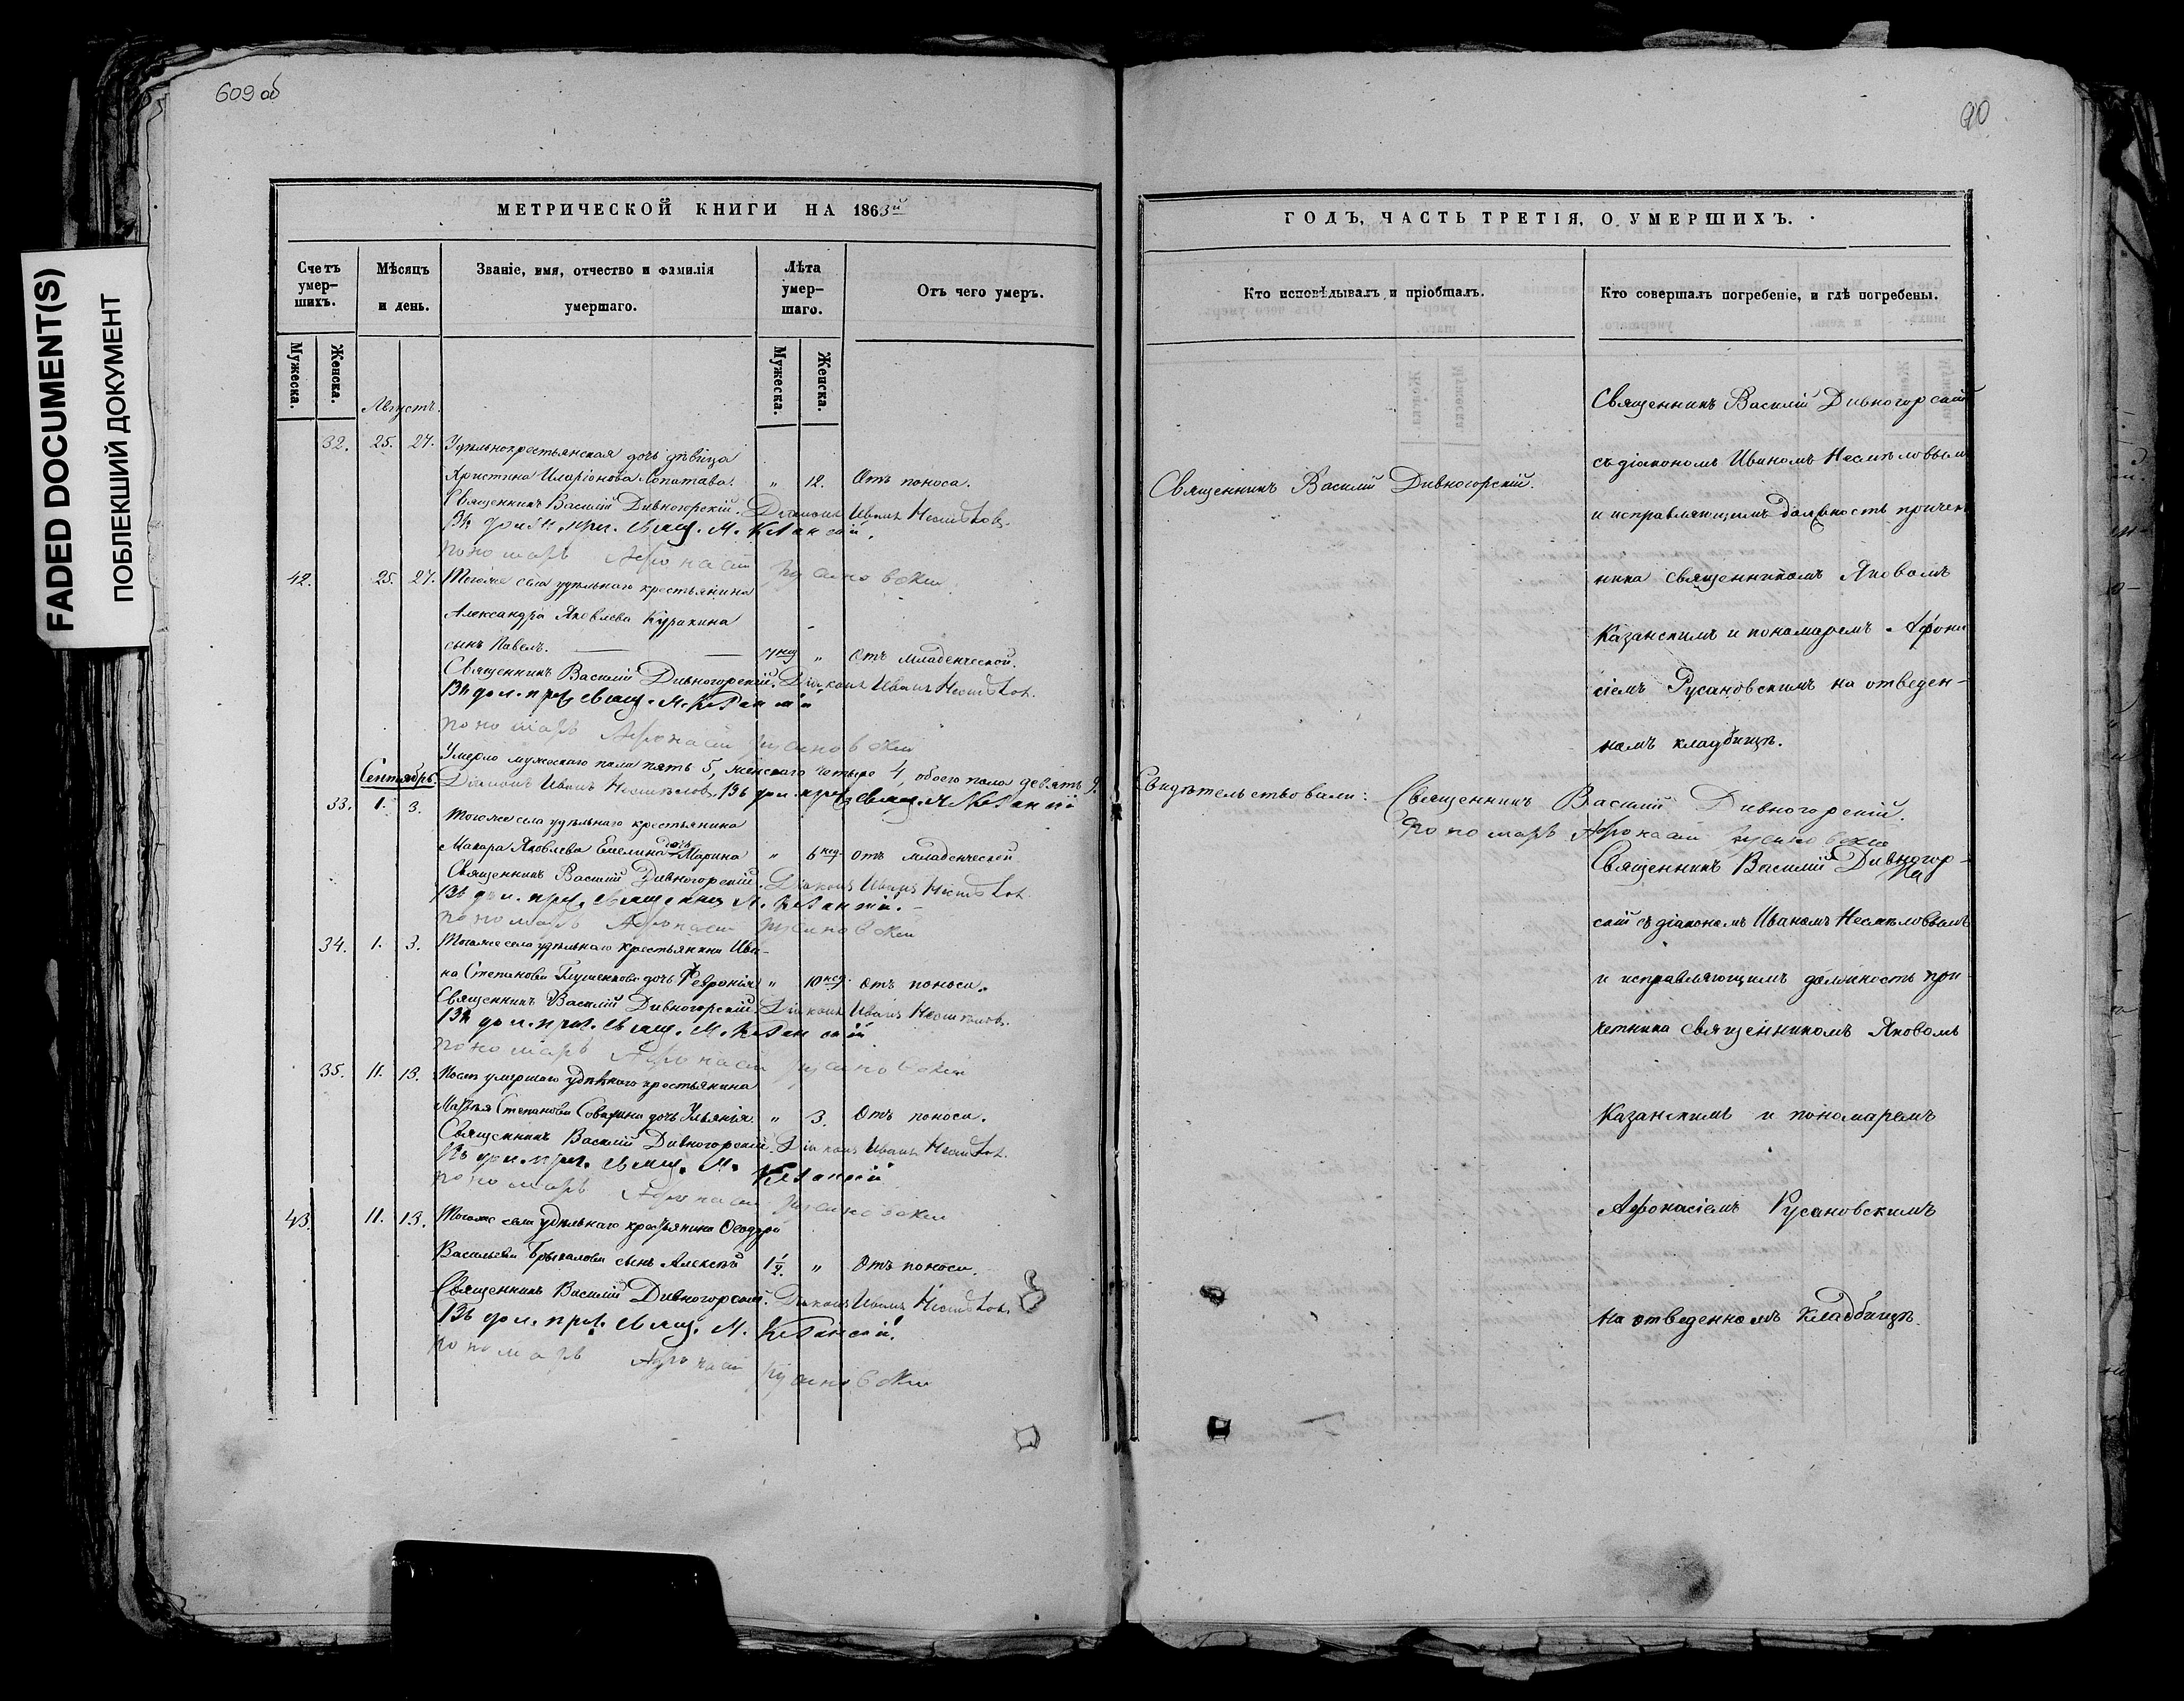 609 об
90
FADED DOCUMENT(S)
ПОБЛЕКШИЙ ДОКУМЕНТ
МЕТРИЧЕСКОЙ КНИГИ НА 1863й
Счетъ умер-шихъ.
Мѣсяцъ и день.
Званіе, имя, отчество и фамилія умершаго.
Лѣта умер-шаго.
Отъ чего умеръ.
Мужеска.
Женска.
Мужеска.
Женска.
Августъ.
32. 25. 27. Удѣльнокрестьянская дочь дѣвица
Христина Иларіонова Лопатава. " 12. Отъ поноса.
Священникъ Василій Дивногорскій. Діаконъ Иванъ Несмѣловъ.
Въ долж. прич. свящ. Я. Казанскій.
пономарь Афонасій Русановскій
42. 25. 27. Тогоже села удѣльнаго крестьянина
Александра Яковлева Куракина
сынъ Павелъ. 7 нед " Отъ младенческой.
Священникъ Василій Дивногорскій. Діаконъ Иванъ Несмѣловъ.
Въ дол. прич. свящ. Я. Казанскій
пономарь Афонасій Русановскій
Умерло мужескаго пола пять 5, женскаго четыре 4, обоего пола девять 9.
Сентябрь. Діаконъ Иванъ Несмѣловъ. Въ дол. прич. свящ. Я Казанскій
33. 1. 3. Тогоже села удѣльнаго крестьянина
Макара Яковлева Емелина дочь Марина " 6 нед. отъ младенческой
Священникъ Василій Дивногорскій. Діаконъ Иванъ Несмѣловъ.
Въ дол. прич. священ Я. Казанскій.
пономарь Афонасій Русановскій
34. 1. 3. Тогоже села удѣльнаго крестьянина Ива-
на Степанова Глушенкова дочь Февронія " 10 нед. отъ поноса.
Священникъ Василій Дивногорскій. Діаконъ Иванъ Несмѣловъ.
Въ дол. прич. свящ. Я. Казанскій
пономарь Афонасій Русановскій
35. 11. 13. Послѣ умершаго удѣльнаго крестьянина
Степанова дочь Ульянія. " 3. Отъ поноса.
Священникъ Василій Дивногорскій. Діаконъ Иванъ Несмѣловъ.
Въ дол. прич. свящ. Я. Казанскій
пономарь Афонасій Русановскій
43. 11. 13. Тогоже села удѣльнаго крестьянина Ѳеодора
Васильева Брыкалова сынъ Алексѣй 1½. " Отъ поноса.
Священникъ Василій Дивногорскій. Діаконъ Иванъ Несмѣловъ.
Въ дол. прич. свящ. Я. Казанскій.
пономарь Афонасій Русановскій
ГОДЪ, ЧАСТЬ ТРЕТІЯ, О УМЕРШИХЪ.
Кто исповѣдывалъ и пріобщалъ.
Кто совершалъ погребеніе, и гдѣ погребены.
Священникъ Василій Дивногорскій.
Священникъ Василій Дивногорскій
съ діакономъ Иваномъ Несмѣловымъ
и исправляющимъ должность причет
ника священникомъ Яковомъ
Казанскимъ и пономаремъ Афона
сіемъ Русановскимъ на отведен-
номъ кладбищѣ.
Свидѣтельствовали: Священникъ Василій Дивногорскій.
Пономарь Афонасій Русановскій
Священникъ Василій Дивногор-
скій съ діакономъ Иваномъ Несмѣловымъ
и исправляющимъ должность при
четника священникомъ Яковомъ
Казанскимъ и пономаремъ
Афонасіемъ Русановскимъ
на отведенномъ кладбищѣ.